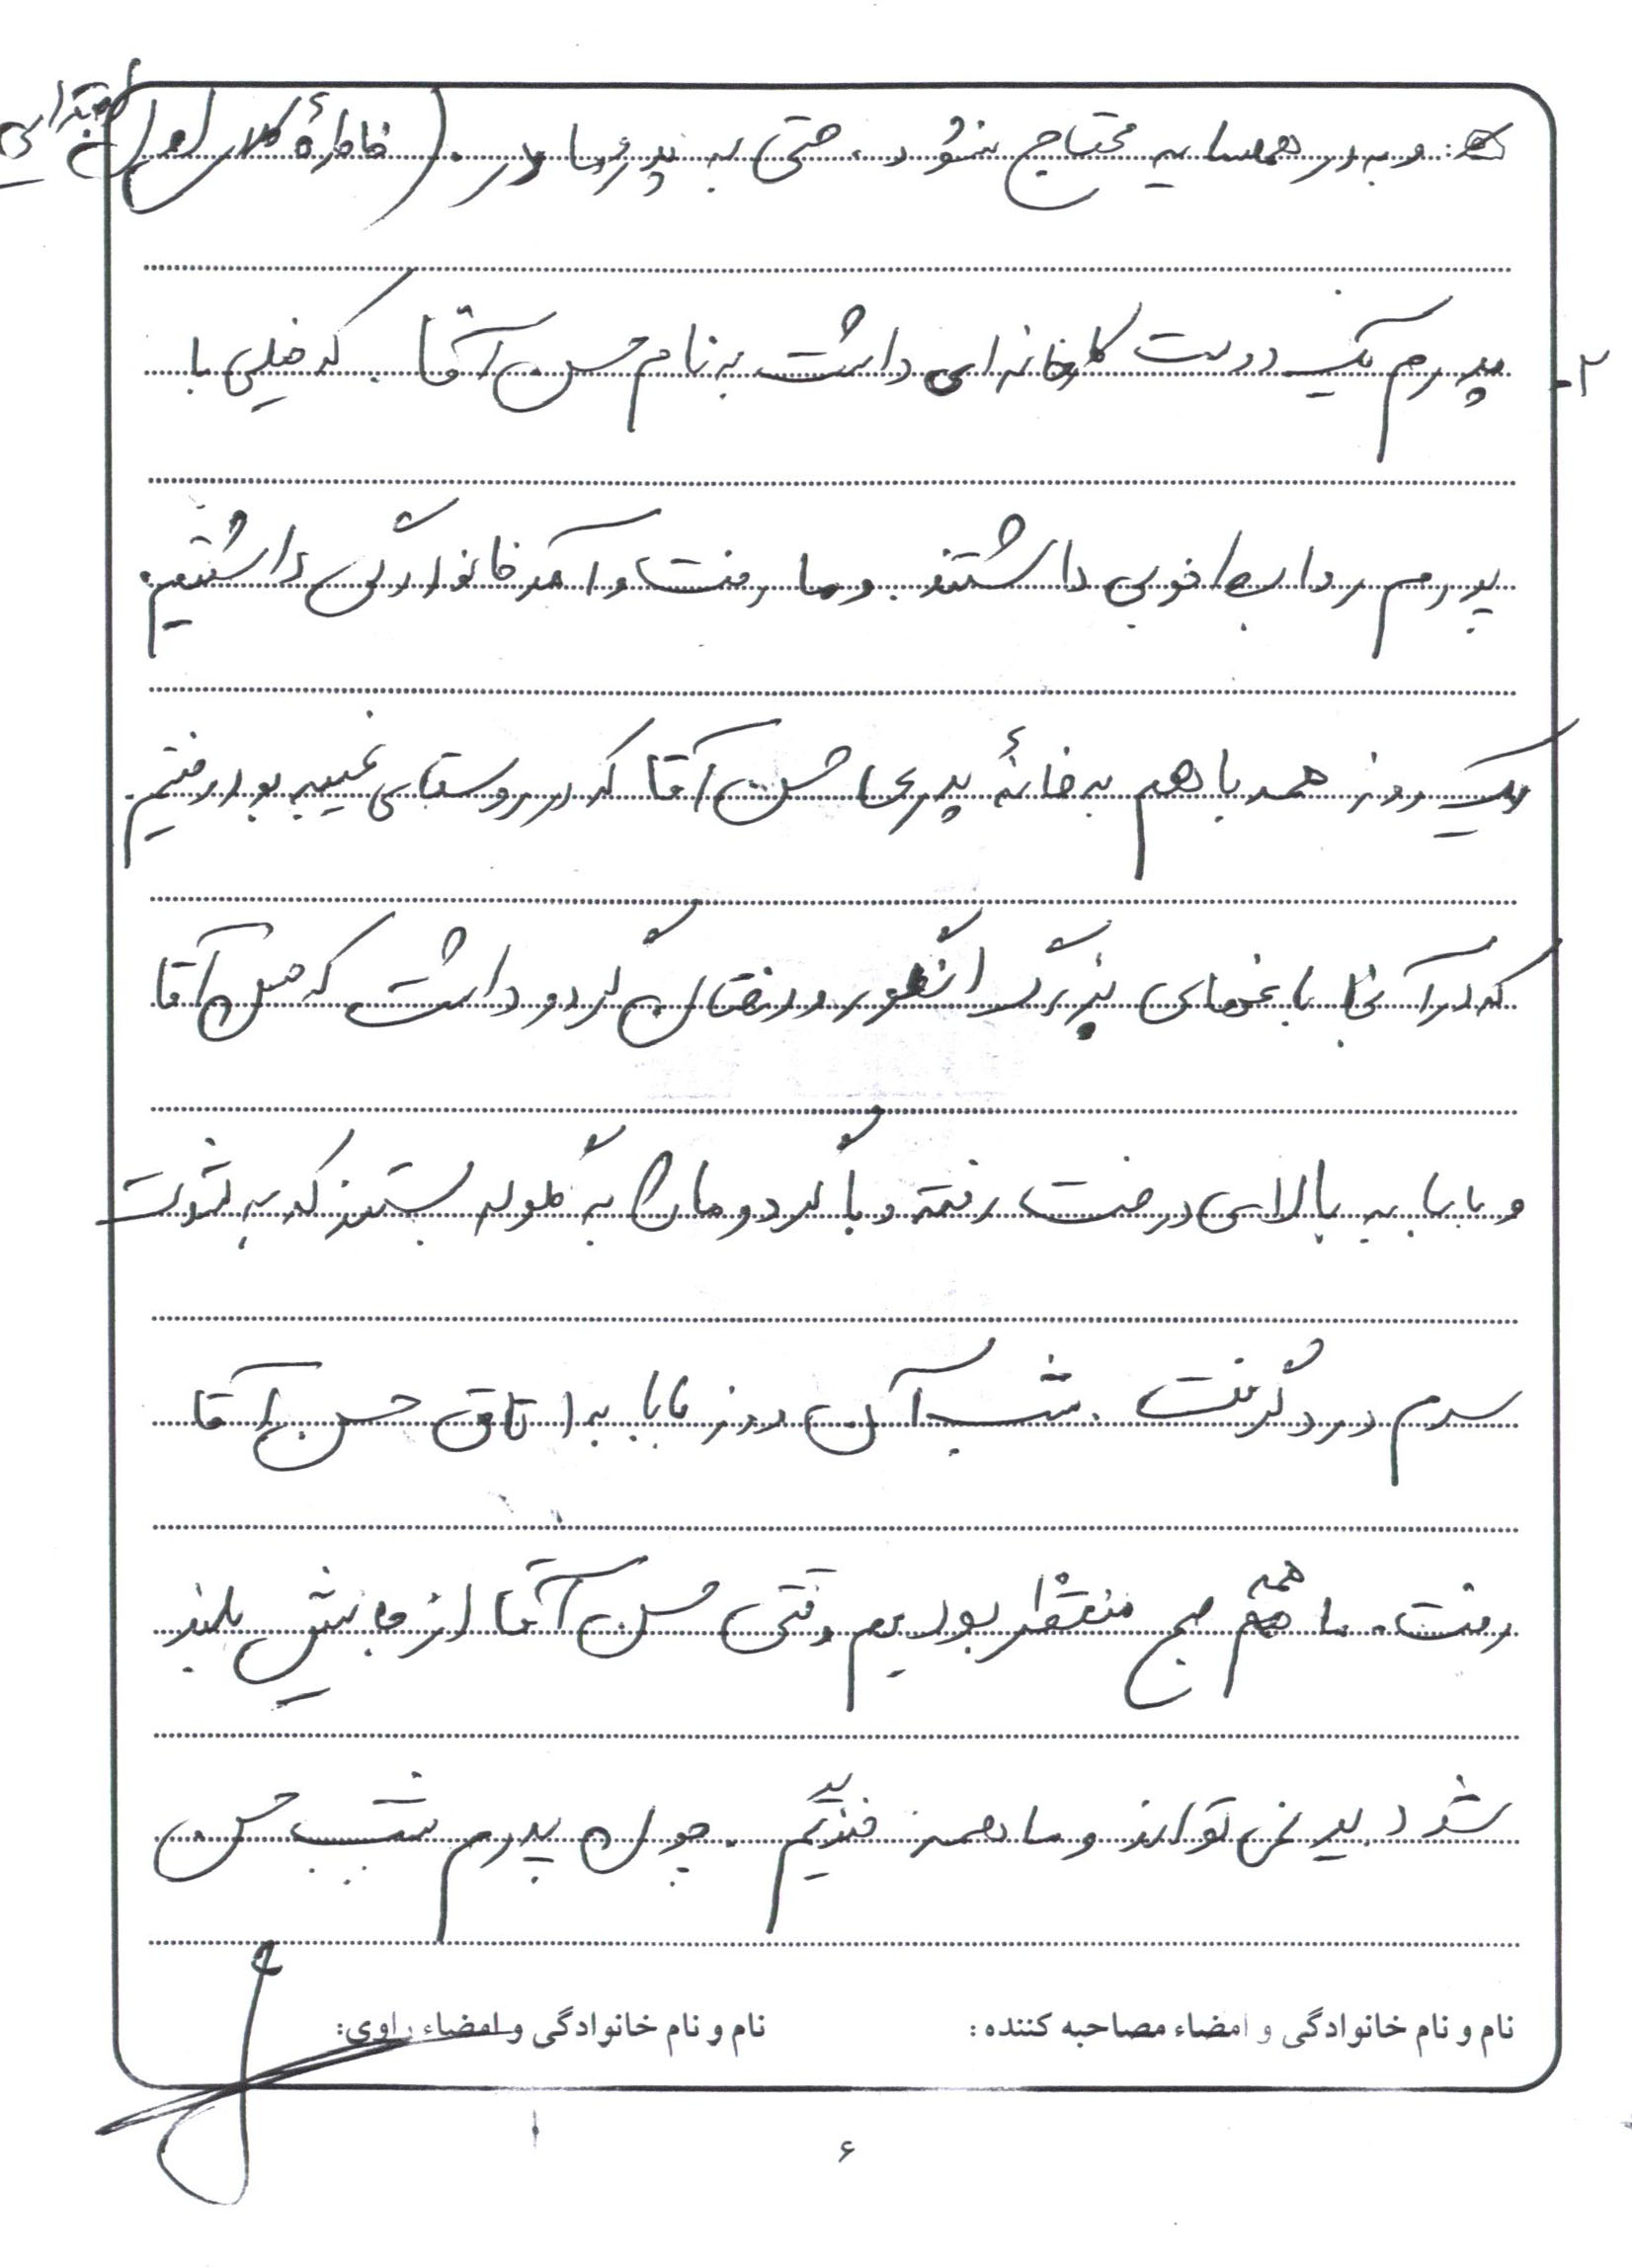 و به در همسایه محتاج نشود. حتی به پدر و مادر. (خاطرهٔ کلاس اول ابتدایی)
۲- پدرم یک دوست کارخانه‌ای داشت به نام حسن آقا. که خیلی با
پدرم روابط خوبی داشتند. و ما رفت و آمد خانوادگی داشتیم.
یک روز همه با هم به خانهٔ پدری حسن آقا که در روستای غیبه بود رفتیم.
که در آنجا باغهای بزرگ انگور و درختان گردو داشت که حسن آقا
و بابا به بالای درخت رفته و با گردو مارا به گلوله بستند که به شدت
سرم درد گرفت. شب آن روز بابا به اتاق حسن آقا
رفت. ما همه صبح منتظر بودیم وقتی حسن آقا از جایش بلند
شود بدید نمی تواند و ما همه خندیدیم. چون پدرم شب حسن
نام و نام خانوادگی و امضاء مصاحبه کننده: نام و نام خانوادگی و امضاء راوی:
۶